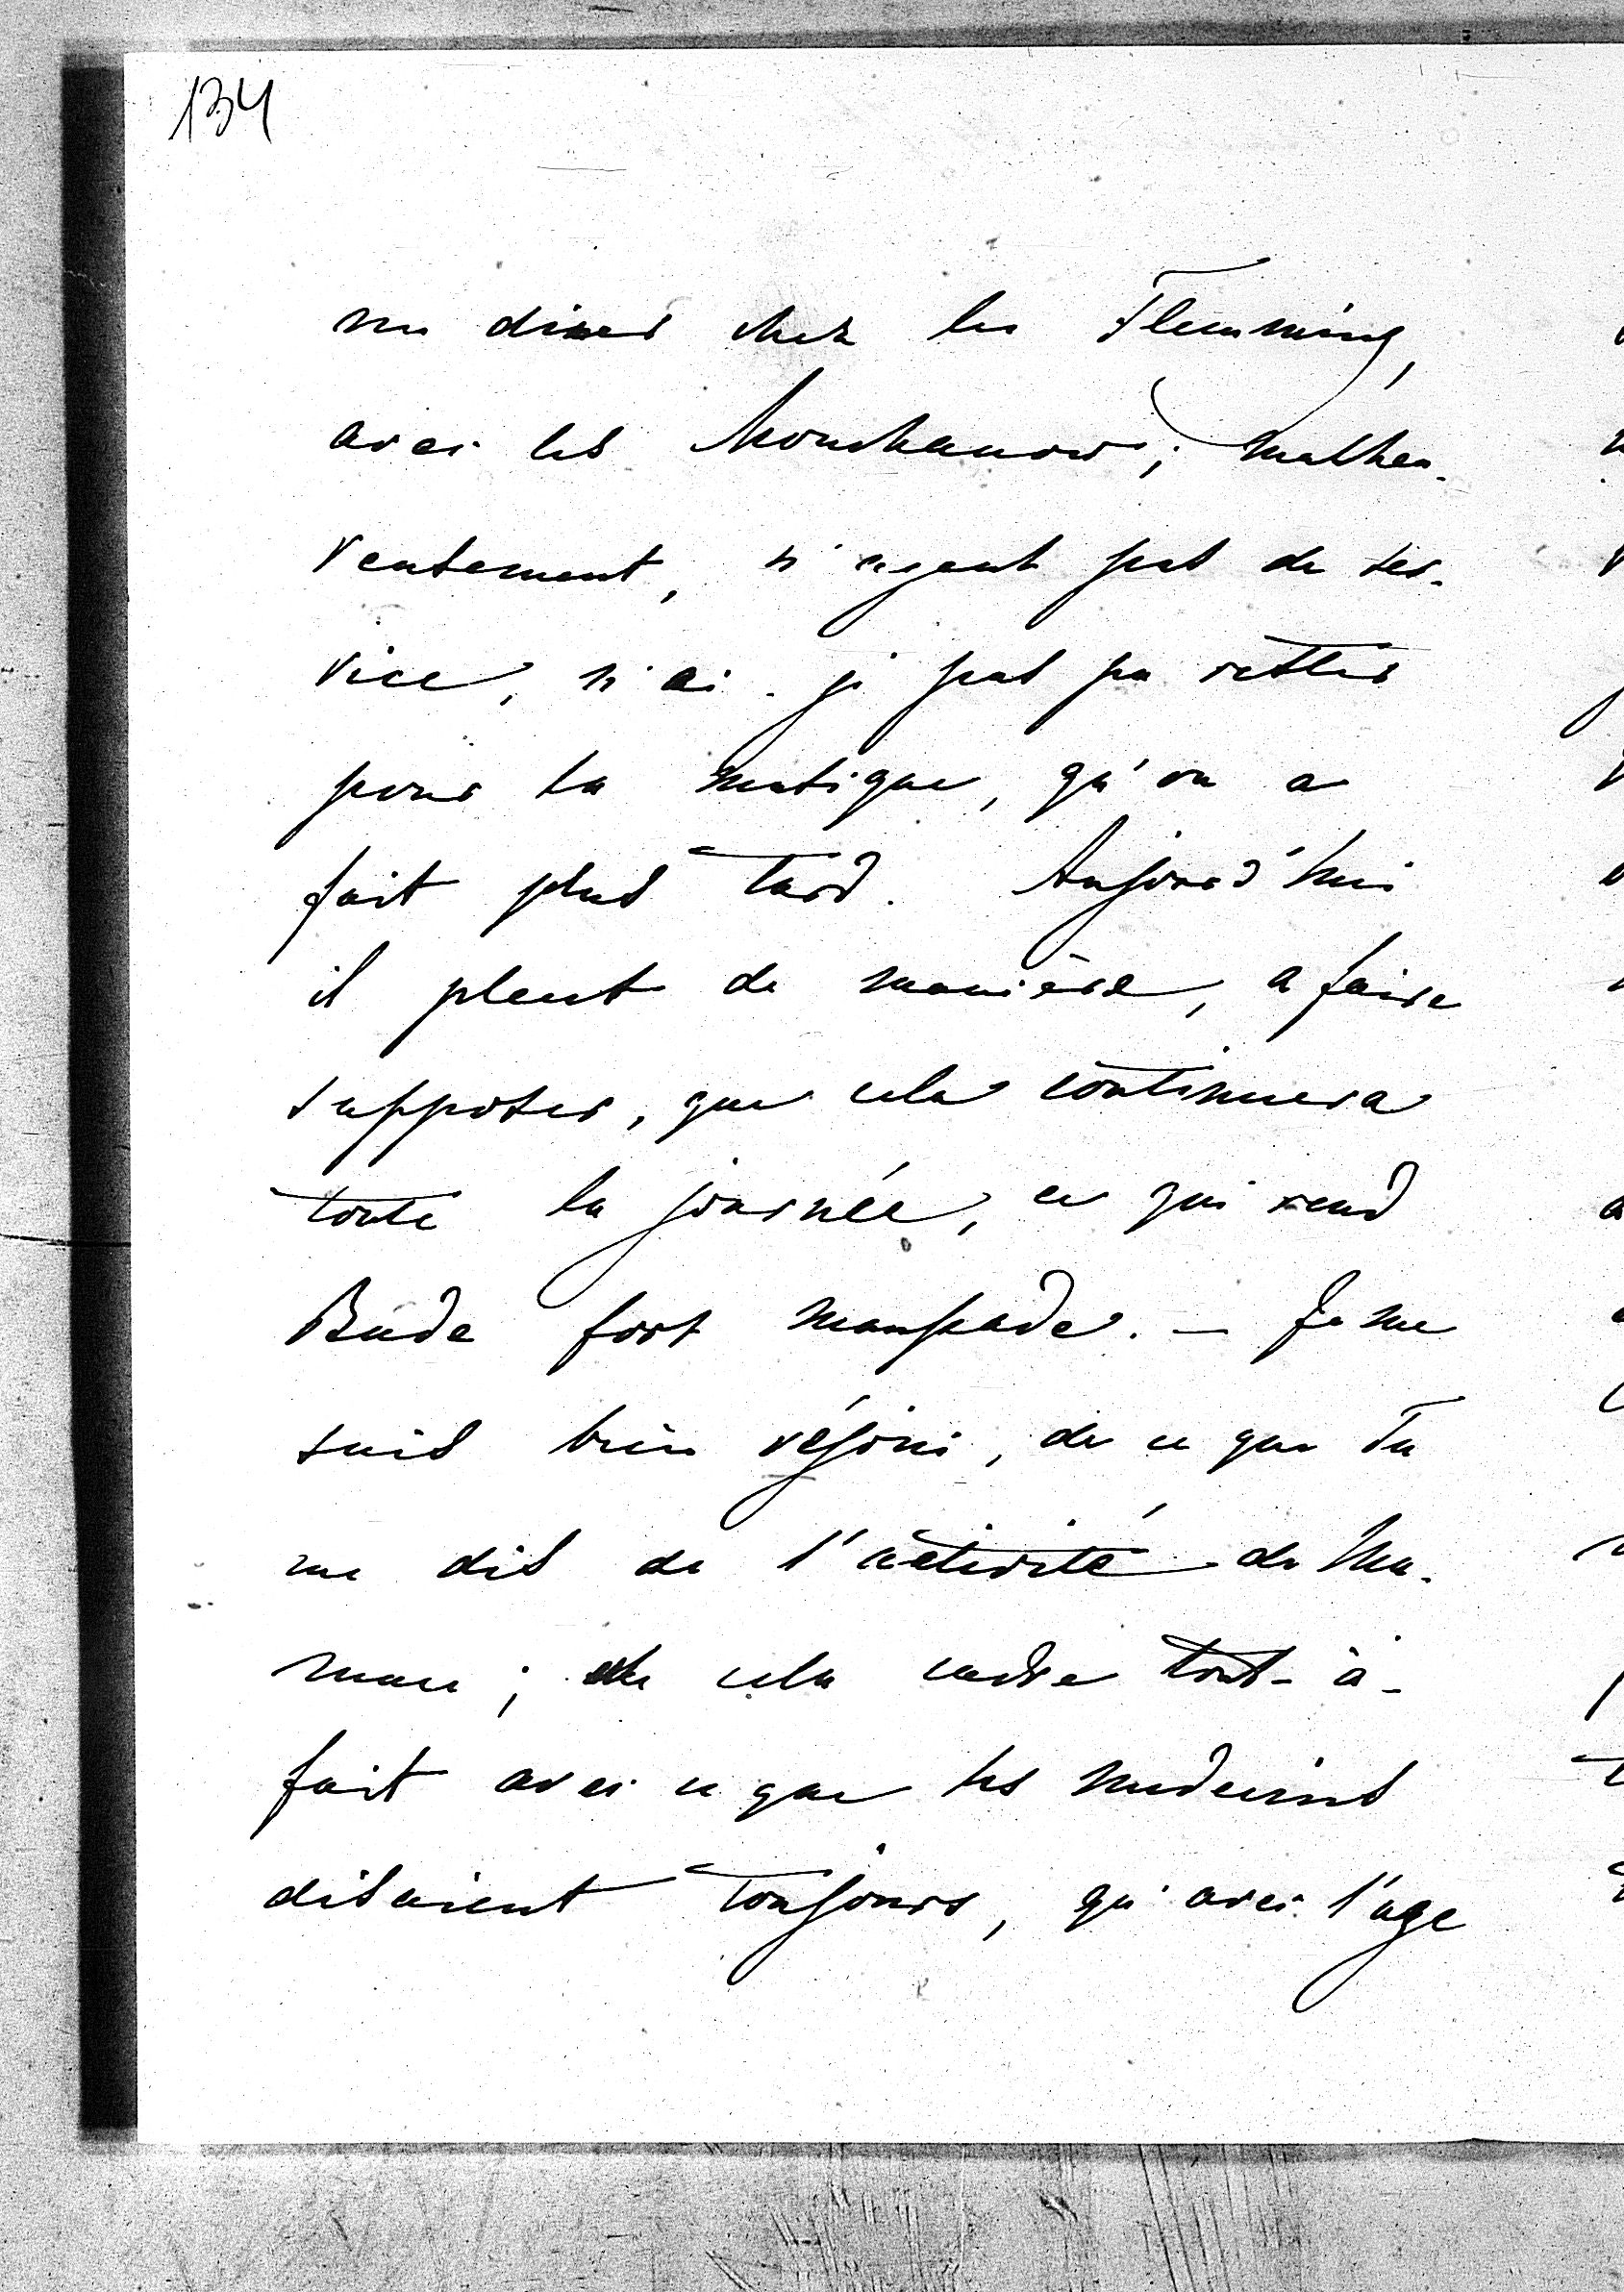 134
un diner chez les Flemming,
avec les Mouchanow; malheu-
reusement, n'ayant pas de ser-
vice, n'ai-je pas pu rester
pour la musique, qu'on a
fait plus tard. Aujourd'hui
il pleut de manière, a faire
supposer, que cela continuera
toute la journée, ce qui rend
Bade fort maussade. — Je me
suis bien réjoui, de ce que Tu
me dis de l'activité de Ma-
man; cela cadre tout-à-
fait avec ce que les medecins
disaient toujours, qu'avec l'age